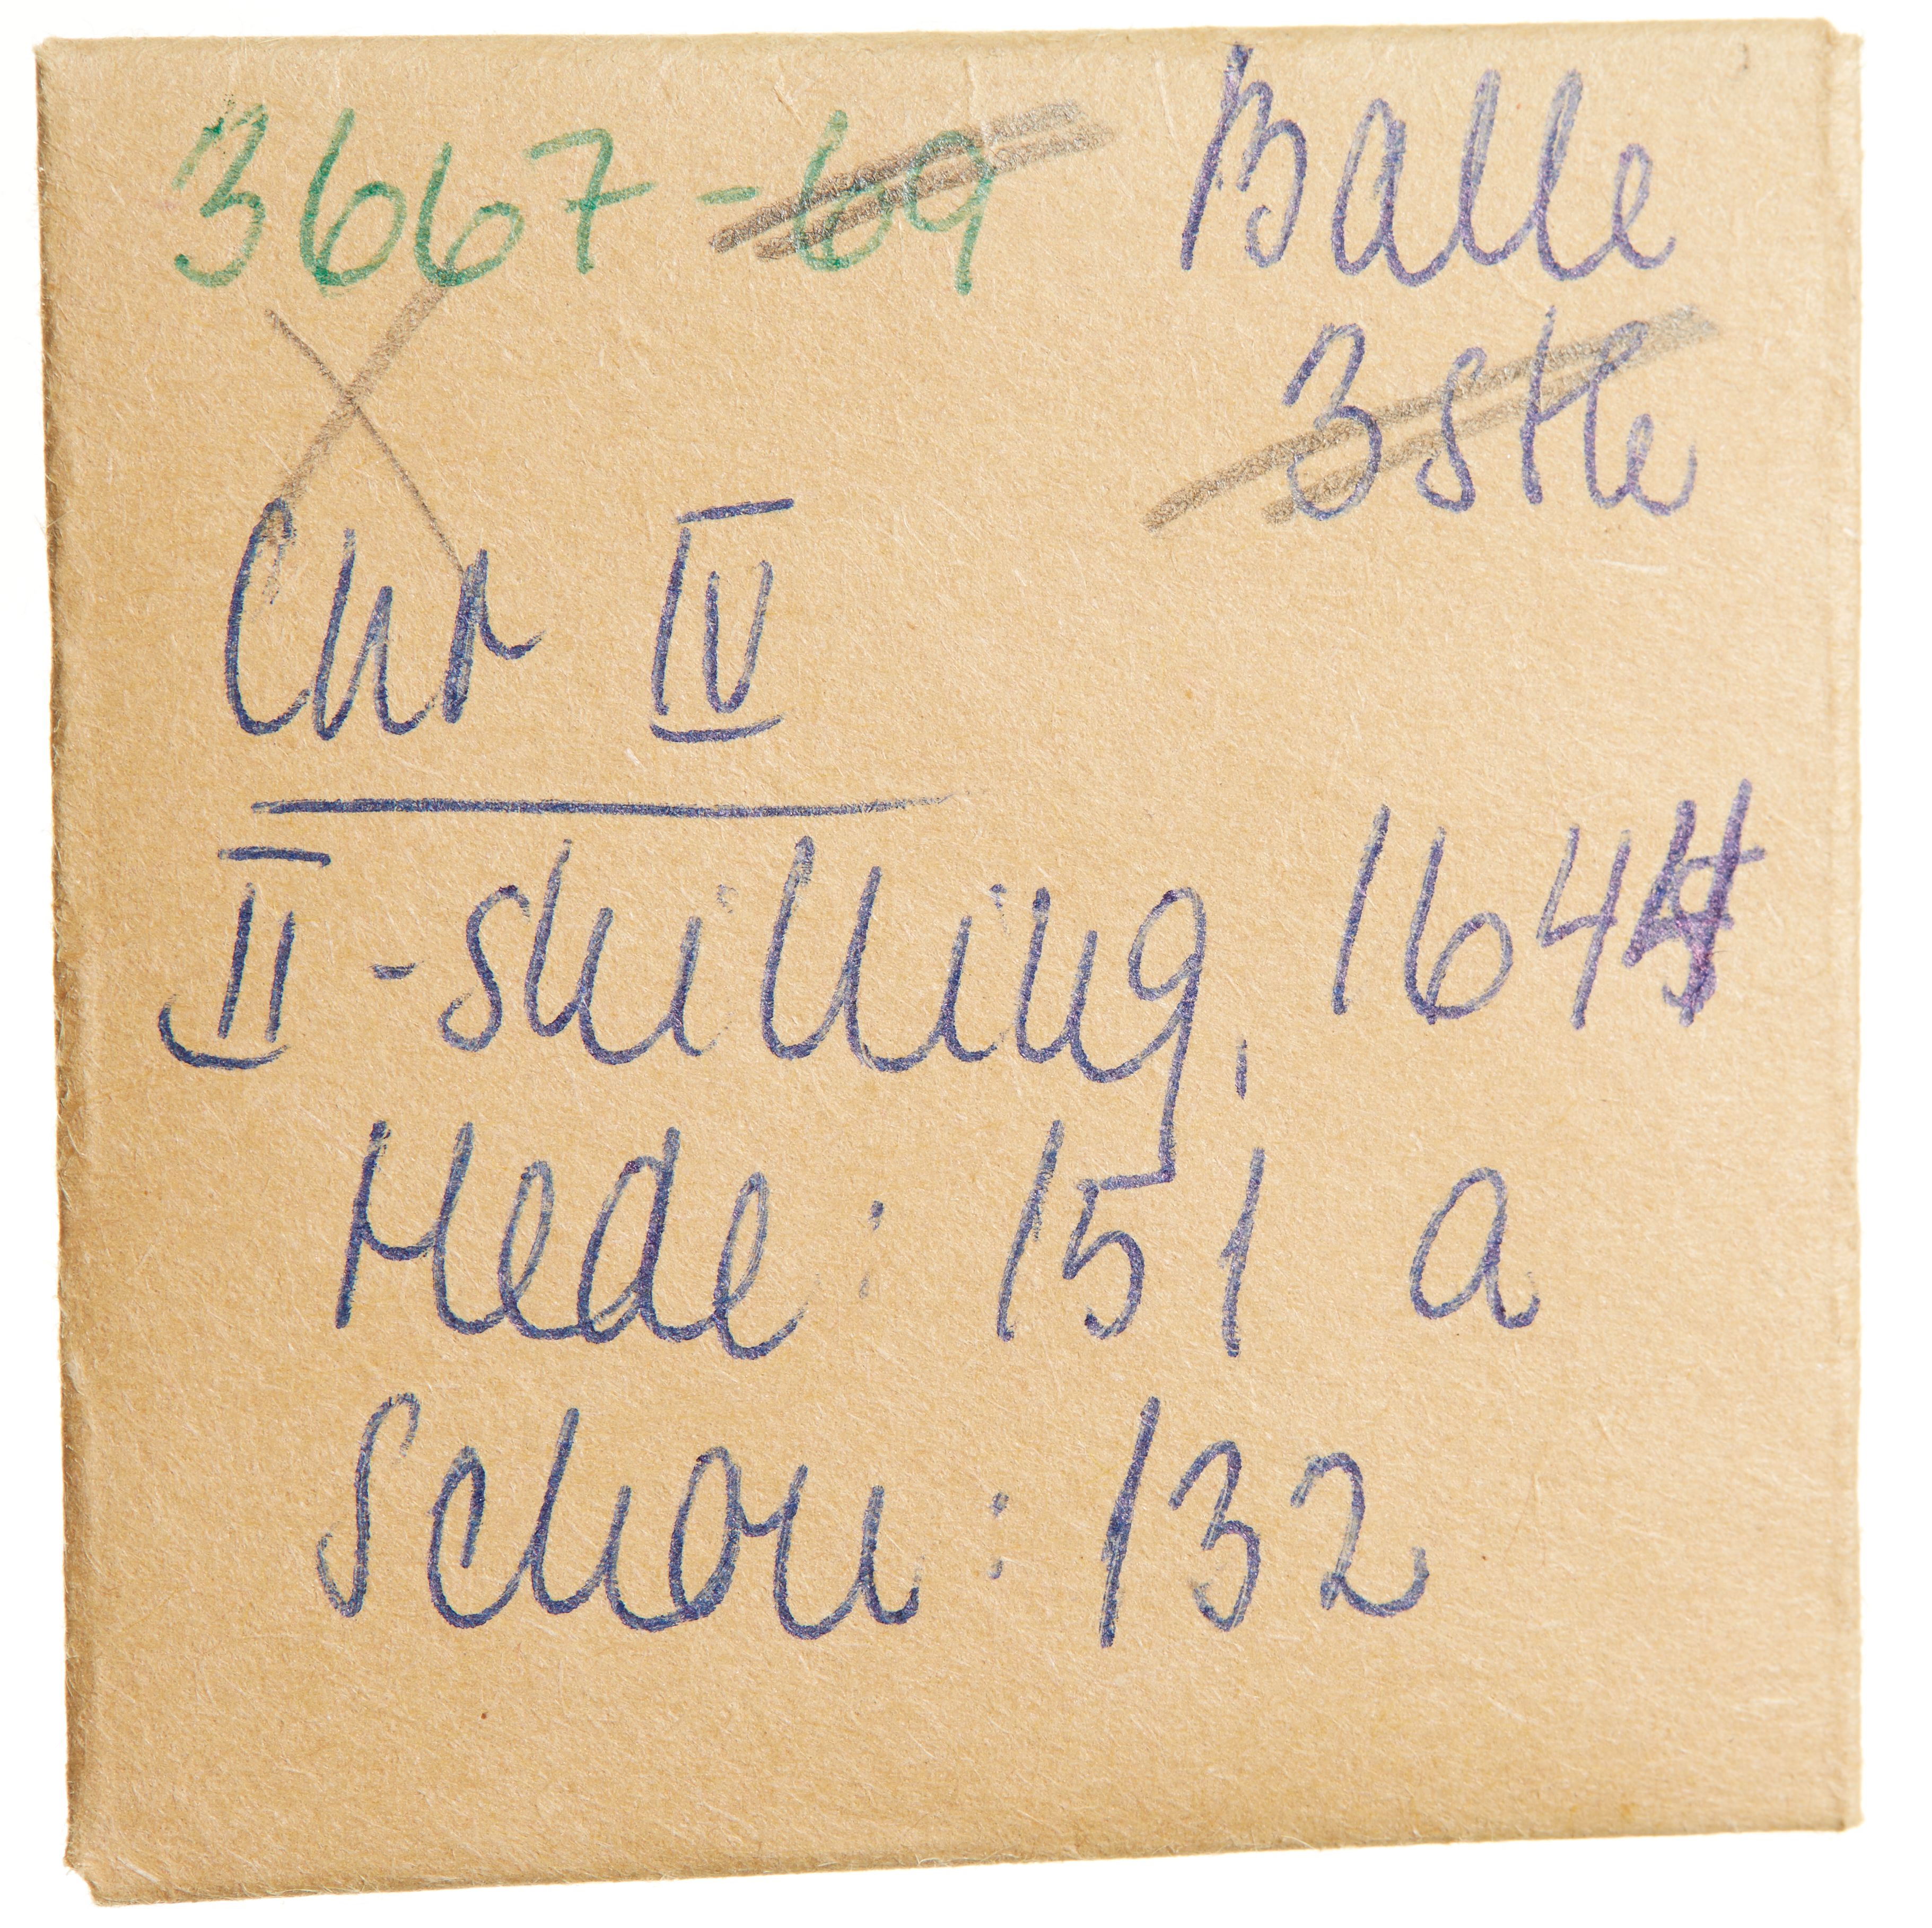 3667 -69 Balle
3 stk
Chr IV
II - skilling, 1644
Hede : 151 a
Schou : 132